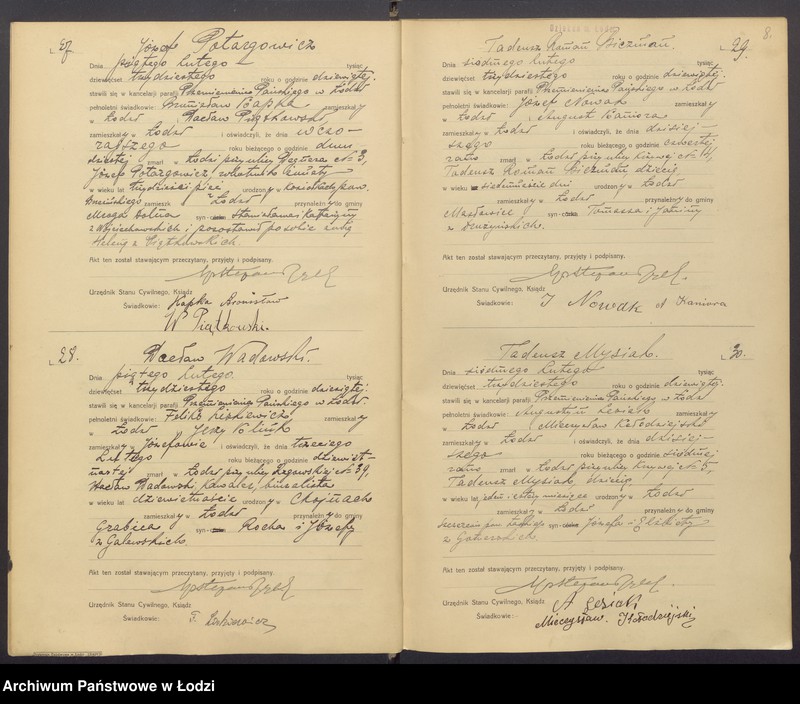 27 Józef Potargowicz
Dnia piątego lutego tysiąc
dziewięćset trzydziestego roku o godzinie dziewiątej
stawili się w kancelarji parafji Przemienienia Pańskiego w Łodzi
pełnoletni świadkowie: Bronisław Kapka zamieszkały
w Łodzi, Wacław Piątkowski
zamieszkały w Łodzi i oświadczyli, że dnia wczo-
rajszego roku bieżącego o godzinie
zmarł w Łodzi przy ulicy 3,
Józef Potargowicz,
w wieku lat trzydzieści pięć urodzony w
zamieszk. w Łodzi przynależny do gminy
syn Stanisława i Katarzyny
z Wojciechowskich i pozostawił po sobie żonę
Helenę z Piątkowskich.
Akt ten został stawającym przeczytany, przyjęty i podpisany.
Urzędnik Stanu Cywilnego, Ksiądz
Świadkowie: Kapka Bronisław
W Piątkowski.
28. Wacław Wadowski.
Dnia piątego lutego tysiąc
dziewięćset trzydziestego roku o godzinie dziewiątej
stawili się w kancelarji parafji Przemienienia Pańskiego w Łodzi
pełnoletni świadkowie: Feliks zamieszkały
w Łodzi Jerzy
zamieszkały w Józefowie i oświadczyli, że dnia trzeciego
Lutego roku bieżącego o godzinie dziewięt-
nastej zmarł w Łodzi przy ulicy 39,
Wacław Wadowski, kawaler,
w wieku lat dziewiętnaście urodzony w Chojnach
zamieszkały w Łodzi przynależny do gminy
Grabica syn Rocha i Józefy
z Galewskich.
Akt ten został stawającym przeczytany, przyjęty i podpisany.
Urzędnik Stanu Cywilnego, Ksiądz
Świadkowie: F.
8.
Tadeusz Roman Biczman. 29.
Dnia siódmego lutego tysiąc
dziewięćset trzydziestego roku o godzinie dziewiątej
stawili się w kancelarji parafji Przemienienia Pańskiego w Łodzi
pełnoletni świadkowie: Józef Nowak zamieszkały
w Łodzi, August Kaniora
zamieszkały w Łodzi i oświadczyli, że dnia dzisiej-
szego roku bieżącego o godzinie czwartej
rano zmarł w Łodzi przy ulicy 14,
Tadeusz Roman dziecię
w wieku siedmnaście dni urodzony w Łodzi
zamieszkały w Łodzi przynależny do gminy
syn Tomasza i Janiny
z Muszyńskich.
Akt ten został stawającym przeczytany, przyjęty i podpisany.
Urzędnik Stanu Cywilnego, Ksiądz
Świadkowie: J Nowak A Kaniora
Tadeusz Mysiak. 30.
Dnia siódmego lutego tysiąc
dziewięćset trzydziestego roku o godzinie dziewiątej
stawili się w kancelarji parafji Przemienienia Pańskiego w Łodzi
pełnoletni świadkowie: Augustyn Lesiak zamieszkały
w Łodzi, Mieczysław Kołodziejski
zamieszkały w Łodzi i oświadczyli, że dnia dzisiej-
szego roku bieżącego o godzinie siódmej
rano zmarł w Łodzi przy ulicy 5,
Tadeusz Mysiak, dziecię
w wieku urodzony w Łodzi
zamieszkały w Łodzi przynależny do gminy
syn Józefa i Elżbiety
z
Akt ten został stawającym przeczytany, przyjęty i podpisany.
Urzędnik Stanu Cywilnego, Ksiądz
Świadkowie: A Lesiak
Mieczysław. Kołodziejski
Archiwum Państwowe w Łodzi